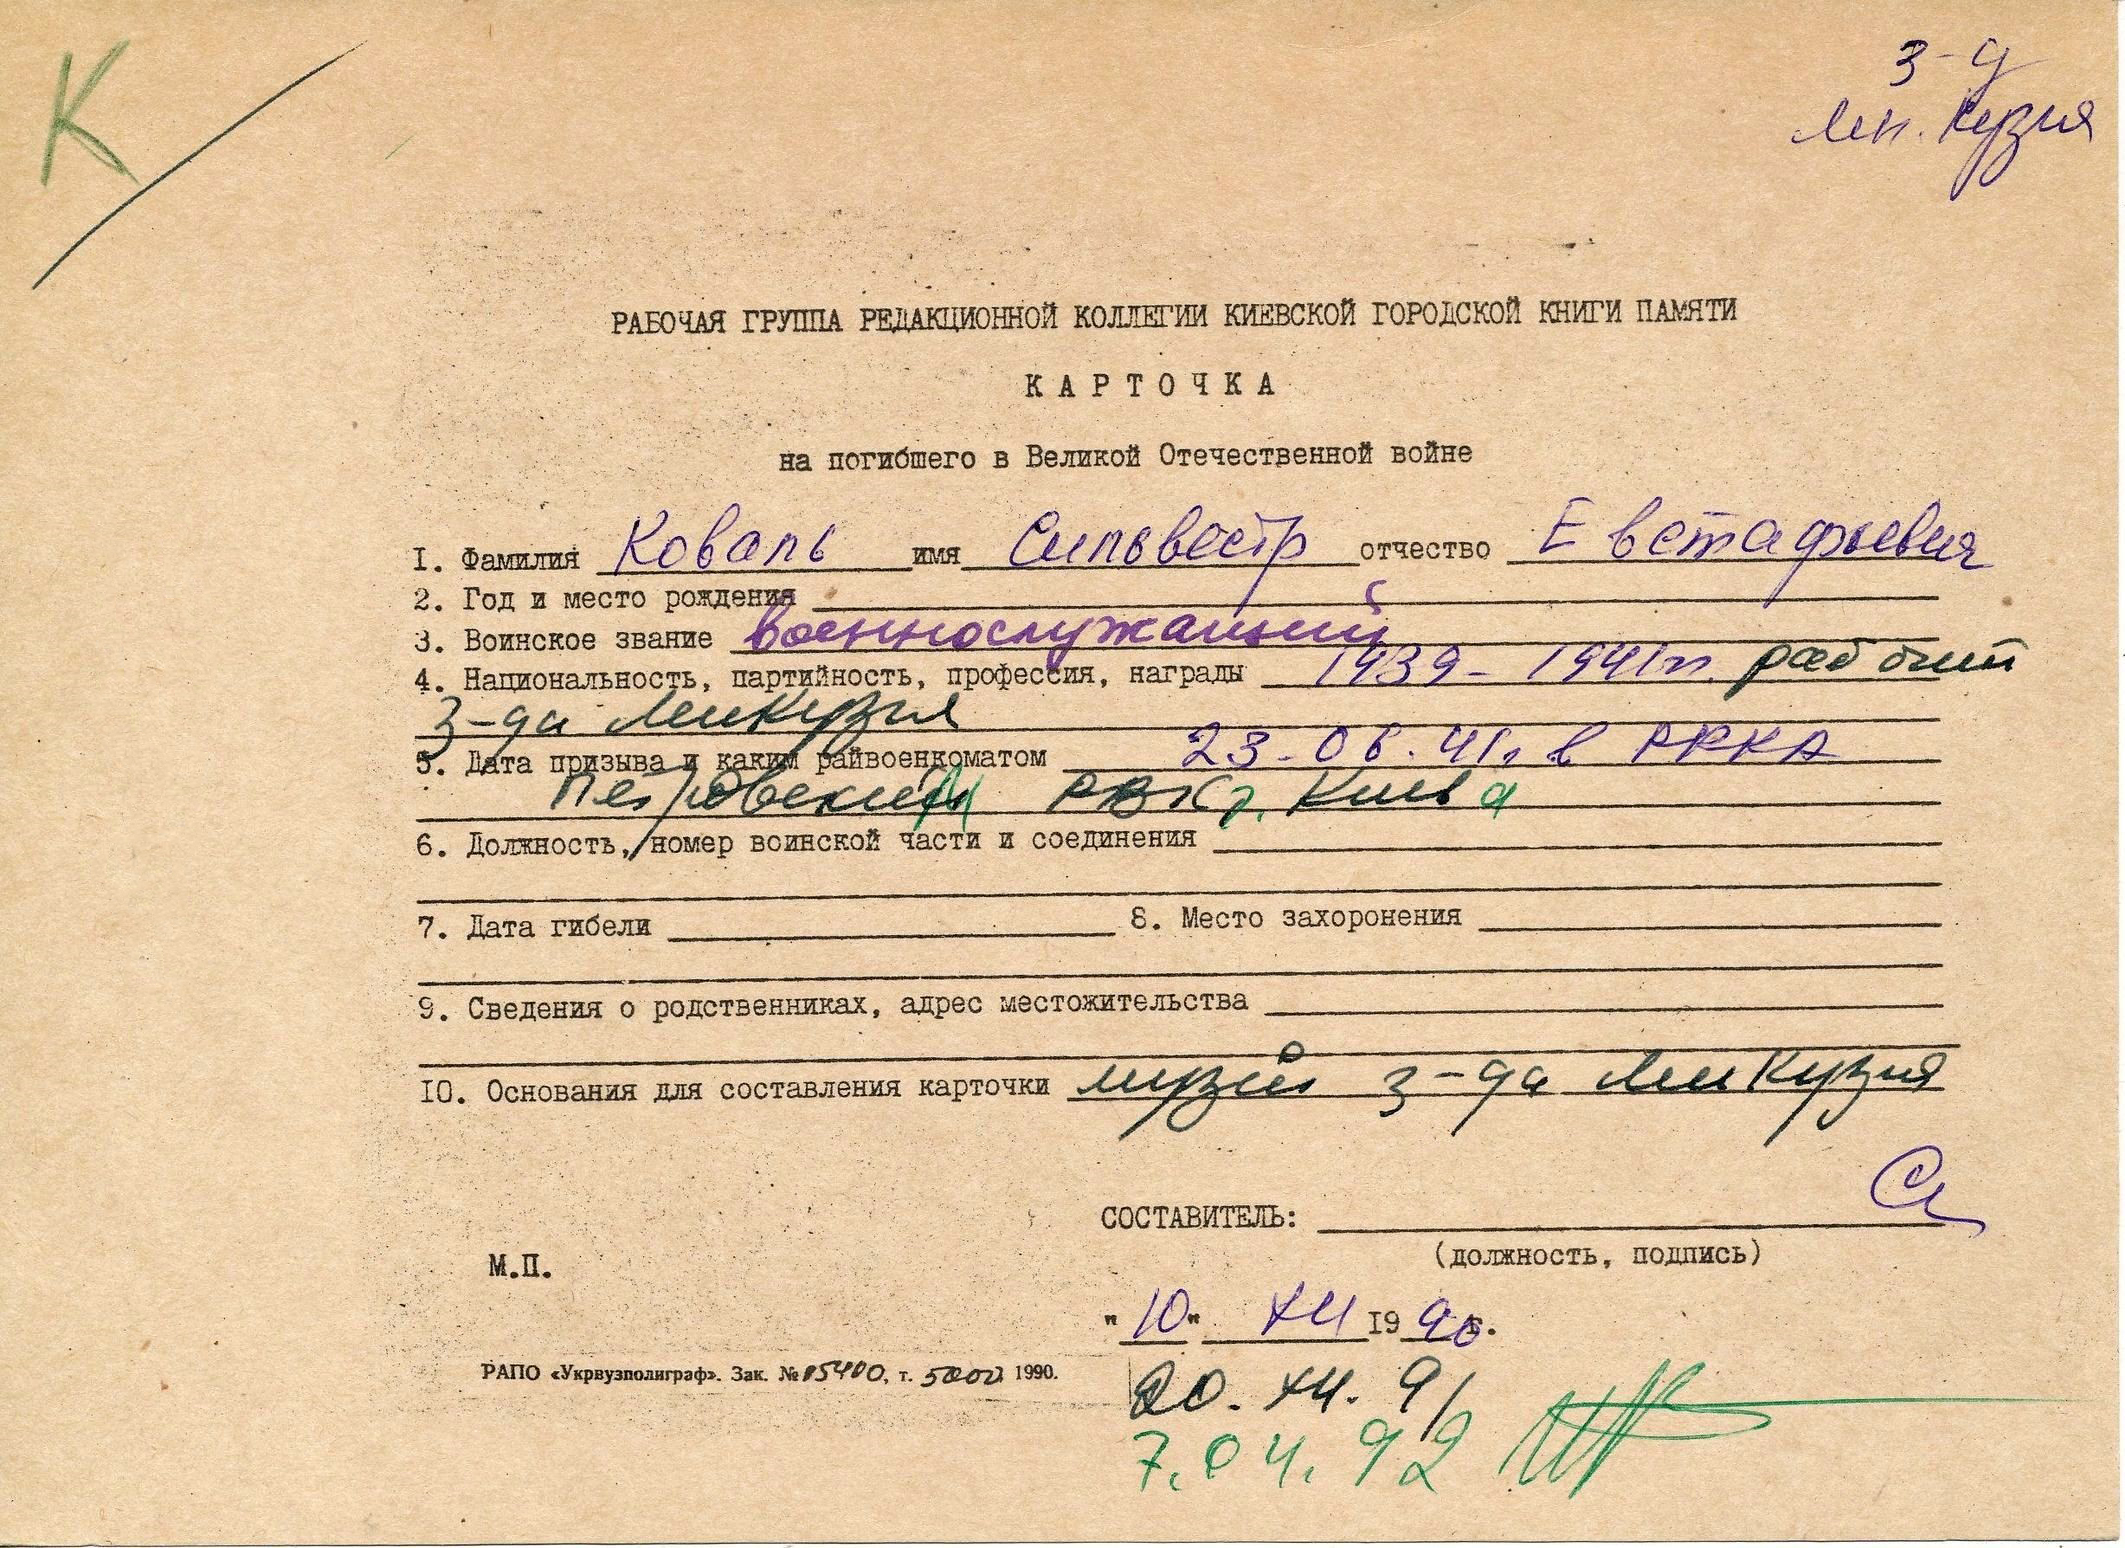 К
з-д
Лен. Кузня
РАБОЧАЯ ГРУППА РЕДАКЦИОННОЙ КОЛЛЕГИИ КИЕВСКОЙ ГОРОДСКОЙ КНИГИ ПАМЯТИ
КАРТОЧКА
на погибшего в Великой Отечественной войне
I. Фамилия Коваль имя Сильвестр отчество Евстафьевич
2. Год и место рождения
3. Воинское звание военнослужащий
4. Национальность, партийность, профессия, награды 1939 - 1941гг. рабочий
з-да Ленкузня
5. Дата призыва и каким райвоенкоматом 23.06.41г. в РККА
Петровским РВК г. Киева
6. Должность, номер воинской части и соединения
7. Дата гибели 8. Место захоронения
9. Сведения о родственниках, адрес местожительства
10. Основания для составления карточки музей з-да Ленкузня
СОСТАВИТЕЛЬ:
(должность, подпись)
М.П.
"10" XII 1990г.
РАПО «Укрвузполиграф». Зак. № 05400, т. 5000 1990.
20. XII. 91
7.04.92